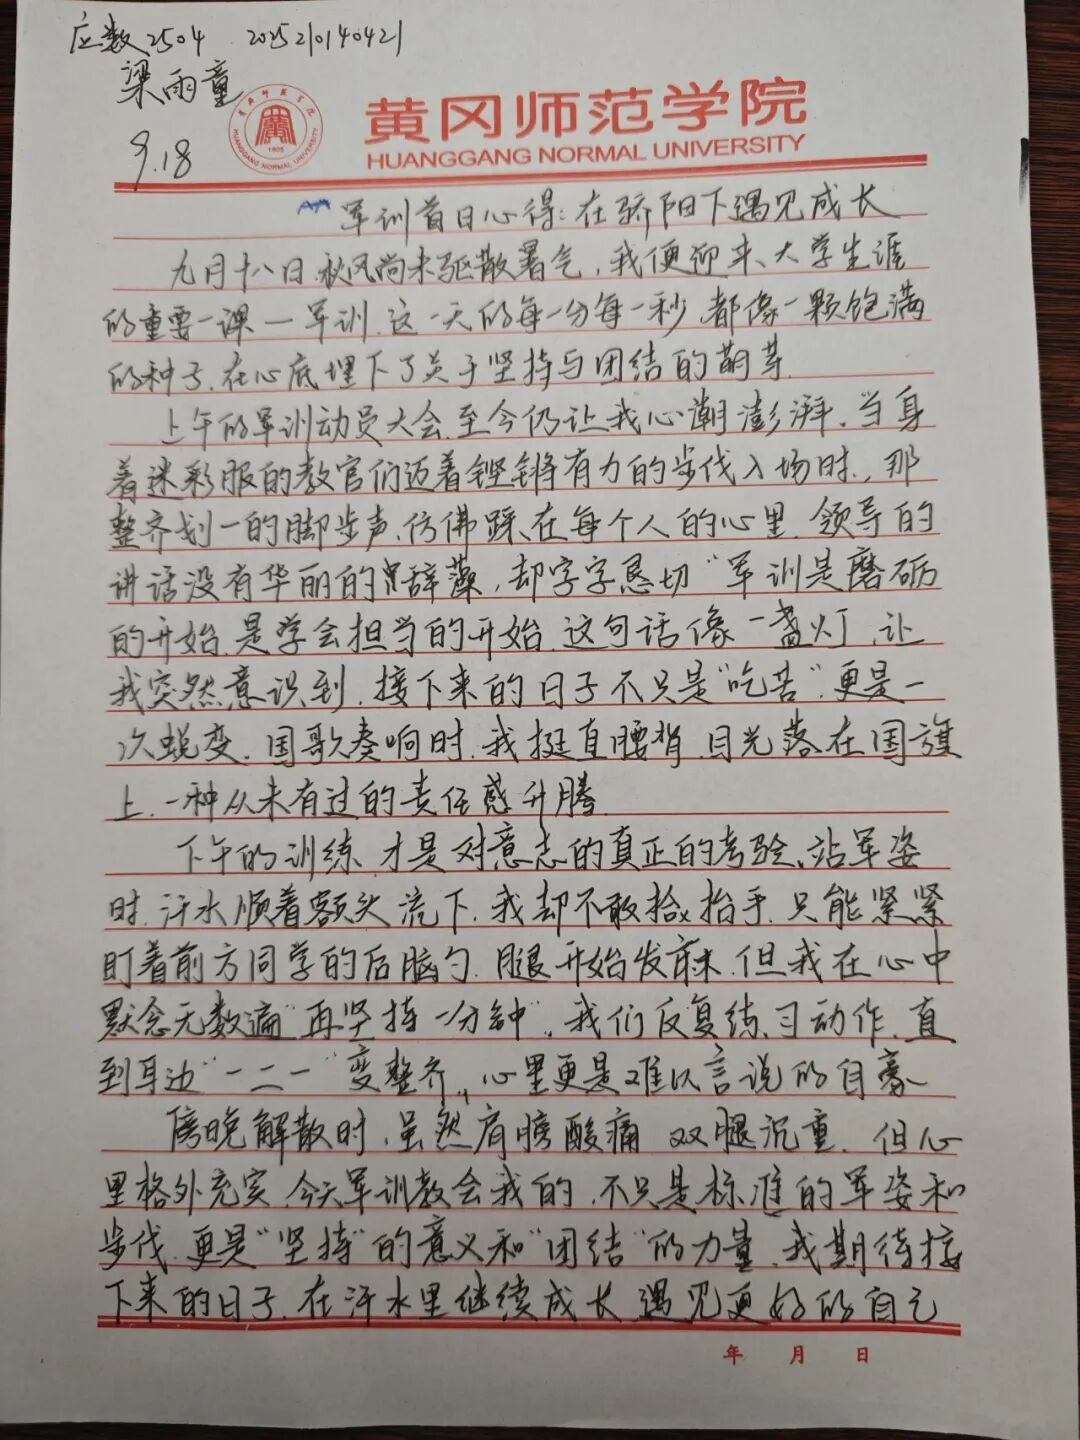 应数2504 2025210140421
梁雨童
9.18
黄冈师范学院
HUANGGANG NORMAL UNIVERSITY
黄冈师范学院
1905
HUANGGANG NORMAL UNIVERSITY
军训首日心得:在骄阳下遇见成长
九月十八日,秋风尚未驱散暑气,我便迎来、大学生涯
的重要一课—军训.这一天的每一分每一秒,都像一颗饱满
的种子,在心底埋下了关于坚持与团结的萌芽.
上午的军训动员大会,至今仍让我心潮澎湃.当身
着迷彩服的教官们迈着铿锵有力的步伐入场时,那
整齐划一的脚步声,仿佛踩在每个人的心里.领导的
讲话没有华丽的辞藻,却字字恳切"军训是磨砺
的开始,是学会担当的开始.这句话像一盏灯,让
我突然意识到,接下来的日子不只是"吃苦",更是一
次蜕变.国歌奏响时,我挺直腰背,目光落在国旗
上,一种从未有过的责任感升腾.
下午的训练,才是对意志的真正的考验、站军姿
时,汗水顺着额头流下,我却不敢抬手,只能紧紧
盯着前方同学的后脑勺.腿开始发麻,但我在心中
默念无数遍"再坚持一分钟".我们反复练习动作,直
到耳边"一二一"变整齐,心里更是难以言说的自豪
傍晚解散时,虽然肩膀酸痛,双腿沉重.但心
里格外充实.今天军训教会我的,不只是标准的军姿和
步伐,更是"坚持"的意义和"团结"的力量.我期待接
下来的日子,在汗水里继续成长,遇见更好的自己
年 月 日